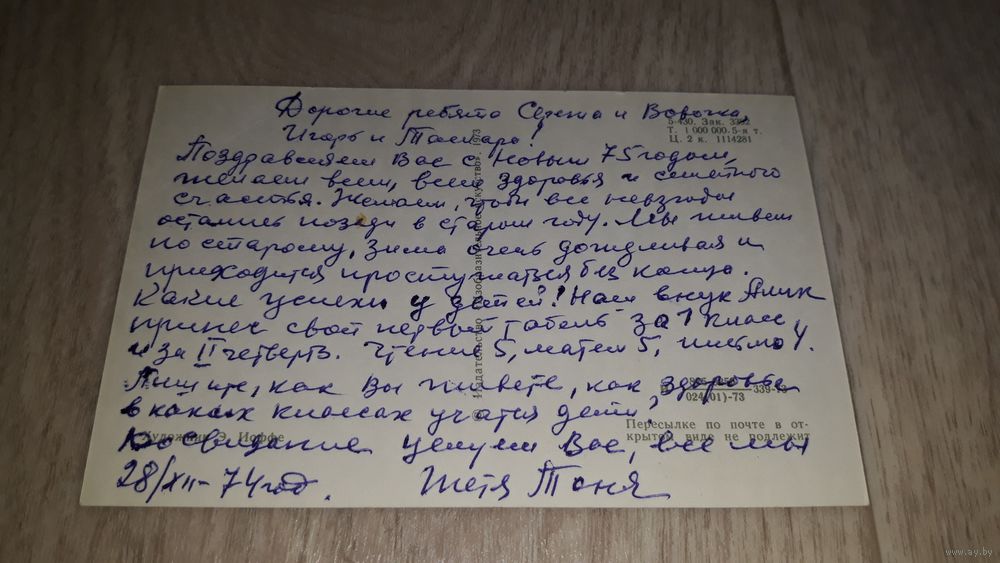 Дорогие ребята Сережа и Вовочка,
Игорь и Тамара!
5-430. Зак. 3382
Т. 1 000 000. 5-я т.
Ц. 2 к. 1114281
Поздравляем Вас с Новым 75 годом,
желаем всем, всем здоровья и семейного
счастья. Желаем, чтобы все невзгоды
остались позади в старом году. Мы живем
по старому, зима очень дождливая и
приходится простужаться без конца.
Какие успехи у детей! Наш внук Алик
принес свой первый табель за 1 класс
и за II четверть. Чтение 5, матем 5, письмо 4.
Пишите, как Вы живете, как здоровье
в каких классах учатся дети,
До свидание целуем Вас, все мы
28/XII-74 год. Тетя Тоня
© «Издательство «Изобразительное искусство». 1973
024(01)-73
339-73
Художник Э. Иоффе
Пересылке по почте в от-
крытом виде не подлежит
www.ay.by